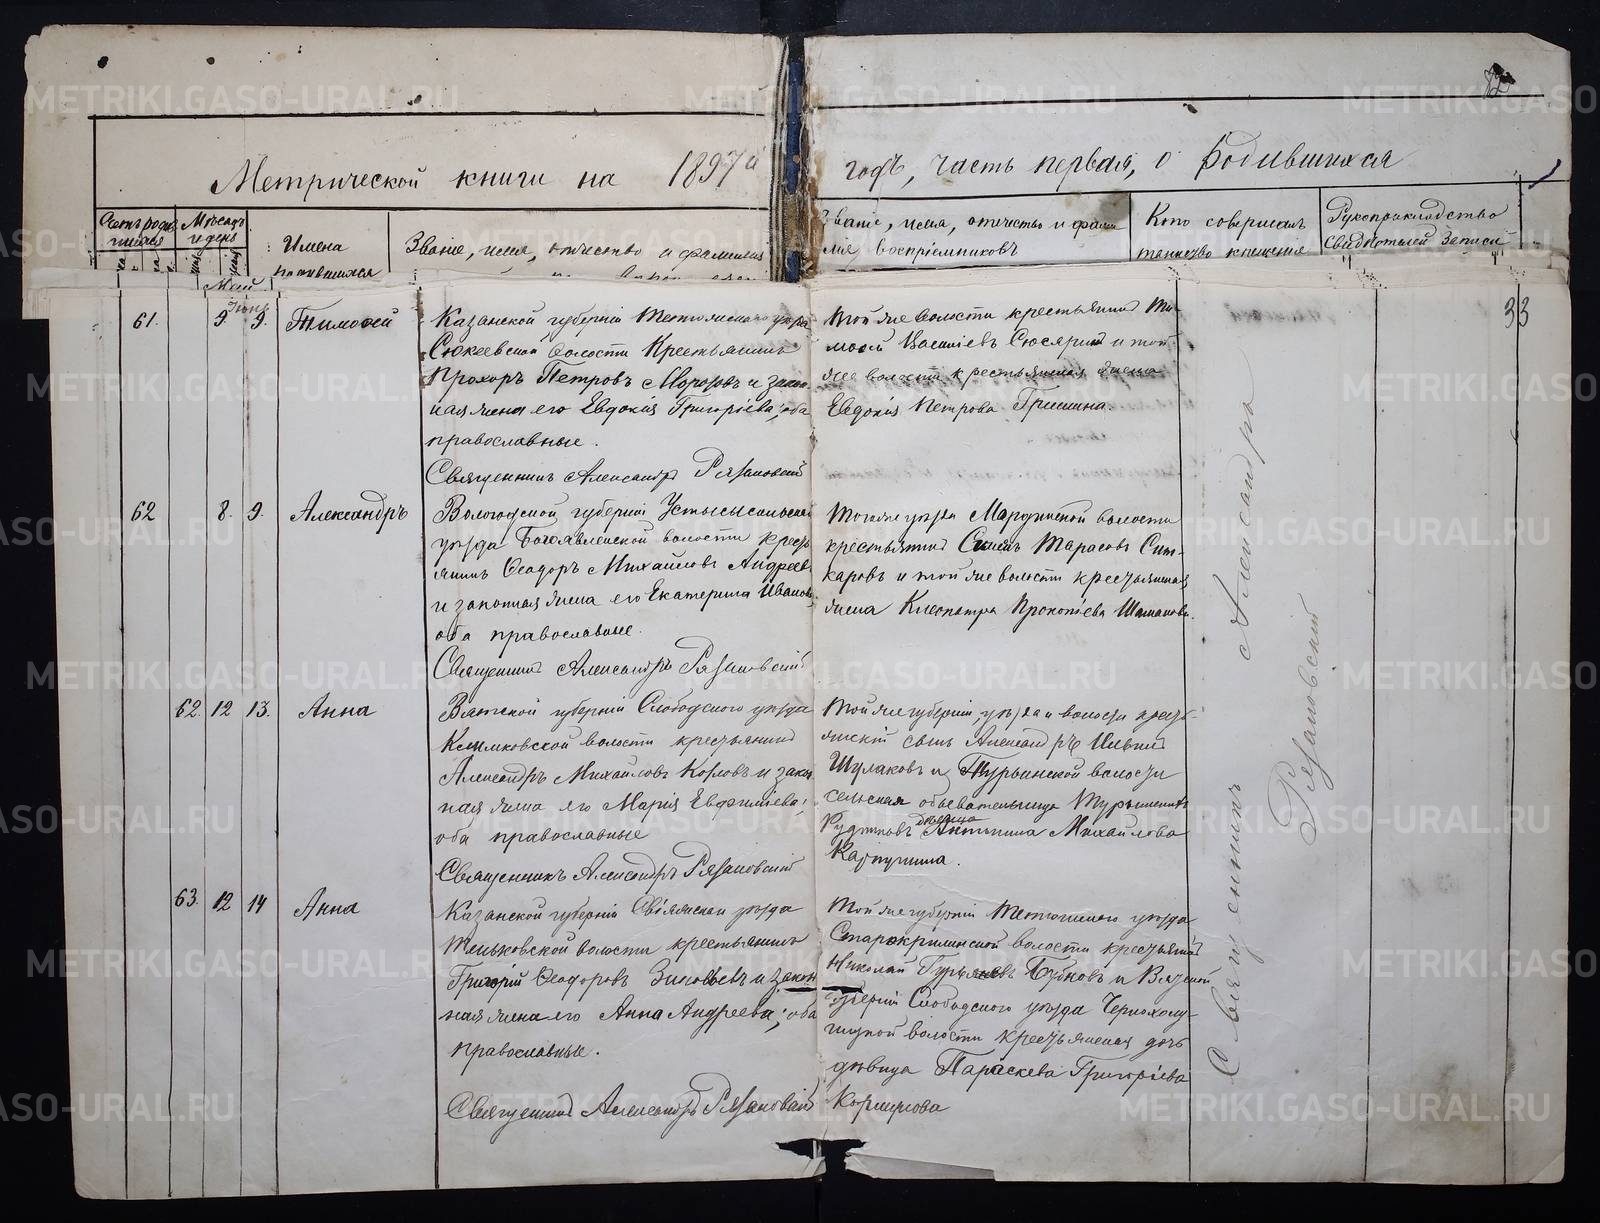 Метрической книги на 1897й
годъ, часть первая, о родившихся
Счетъ родив
шихся
Мѣсяцъ
и день
Имена
родившихся
Званіе, имя, отчество и фамилія
Званіе, имя, отчество и фами
лія воспріемниковъ
Кто совершалъ
таинство крещенія
Рукоприкладство
свидѣтелей записи
33
Май
Іюнь
61. 9. 9. Тимофей
Казанской губерніи Тетюшскаго уѣзда
Сюкеевской волости крестьянинъ
Прохоръ Петровъ Морозовъ и закон
ная жена его Евдокія Григоріева, оба
православные.
Священникъ Александръ Рязановскій
Той же волости крестьянинъ Ти-
мофей Васильевъ и той
же волости крестьянская жена
Евдокія Петрова Гришина.
62 8. 9. Александръ
Вологодской губерніи Устьсысольскаго
уѣзда Богоявленской волости кресть
янинъ Ѳеодоръ Михайловъ Андреев
и законная жена его Екатерина Иванова
оба православные.
Священникъ Александръ Рязановскій
Того же уѣзда волости
крестьянинъ Тарасовъ Сит-
каровъ и той же волости крестьянская
жена Клеопатра Прокопіева
62. 12 13. Анна
Вятской губерніи Слободского уѣзда
волости крестьянинъ
Александръ Михайловъ Козловъ и закон
ная жена его Марія Евфиміева,
оба православные
Священникъ Александръ Рязановскій
Той же губерніи, уѣзда и волости кресть-
янскій сынъ Александръ Ильинъ
Шулаковъ и Турьинской волости
сельская обывательница Турьинскихъ
Рудниковъ девица Антонина Михайлова
63. 12 14 Анна
Казанской губерніи Свіяжскаго уѣзда
Теньковской волости крестьянинъ
Григорій Ѳеодоровъ Зиновьевъ и закон
ная жена его Анна Андреева, оба
православные.
Священникъ Александръ Рязановскій
Той же губерніи Тетюшскаго уѣзда
волости крестьянинъ
Николай Гурьяновъ Бубновъ и Вятской
губерніи Слободского уѣзда Чернохолу-
ницкой волости крестьянская дочь
девица Параскева Григоріева
Коршунова
Священникъ Александръ
Рязановскій
METRIKI.GASO-URAL.RU